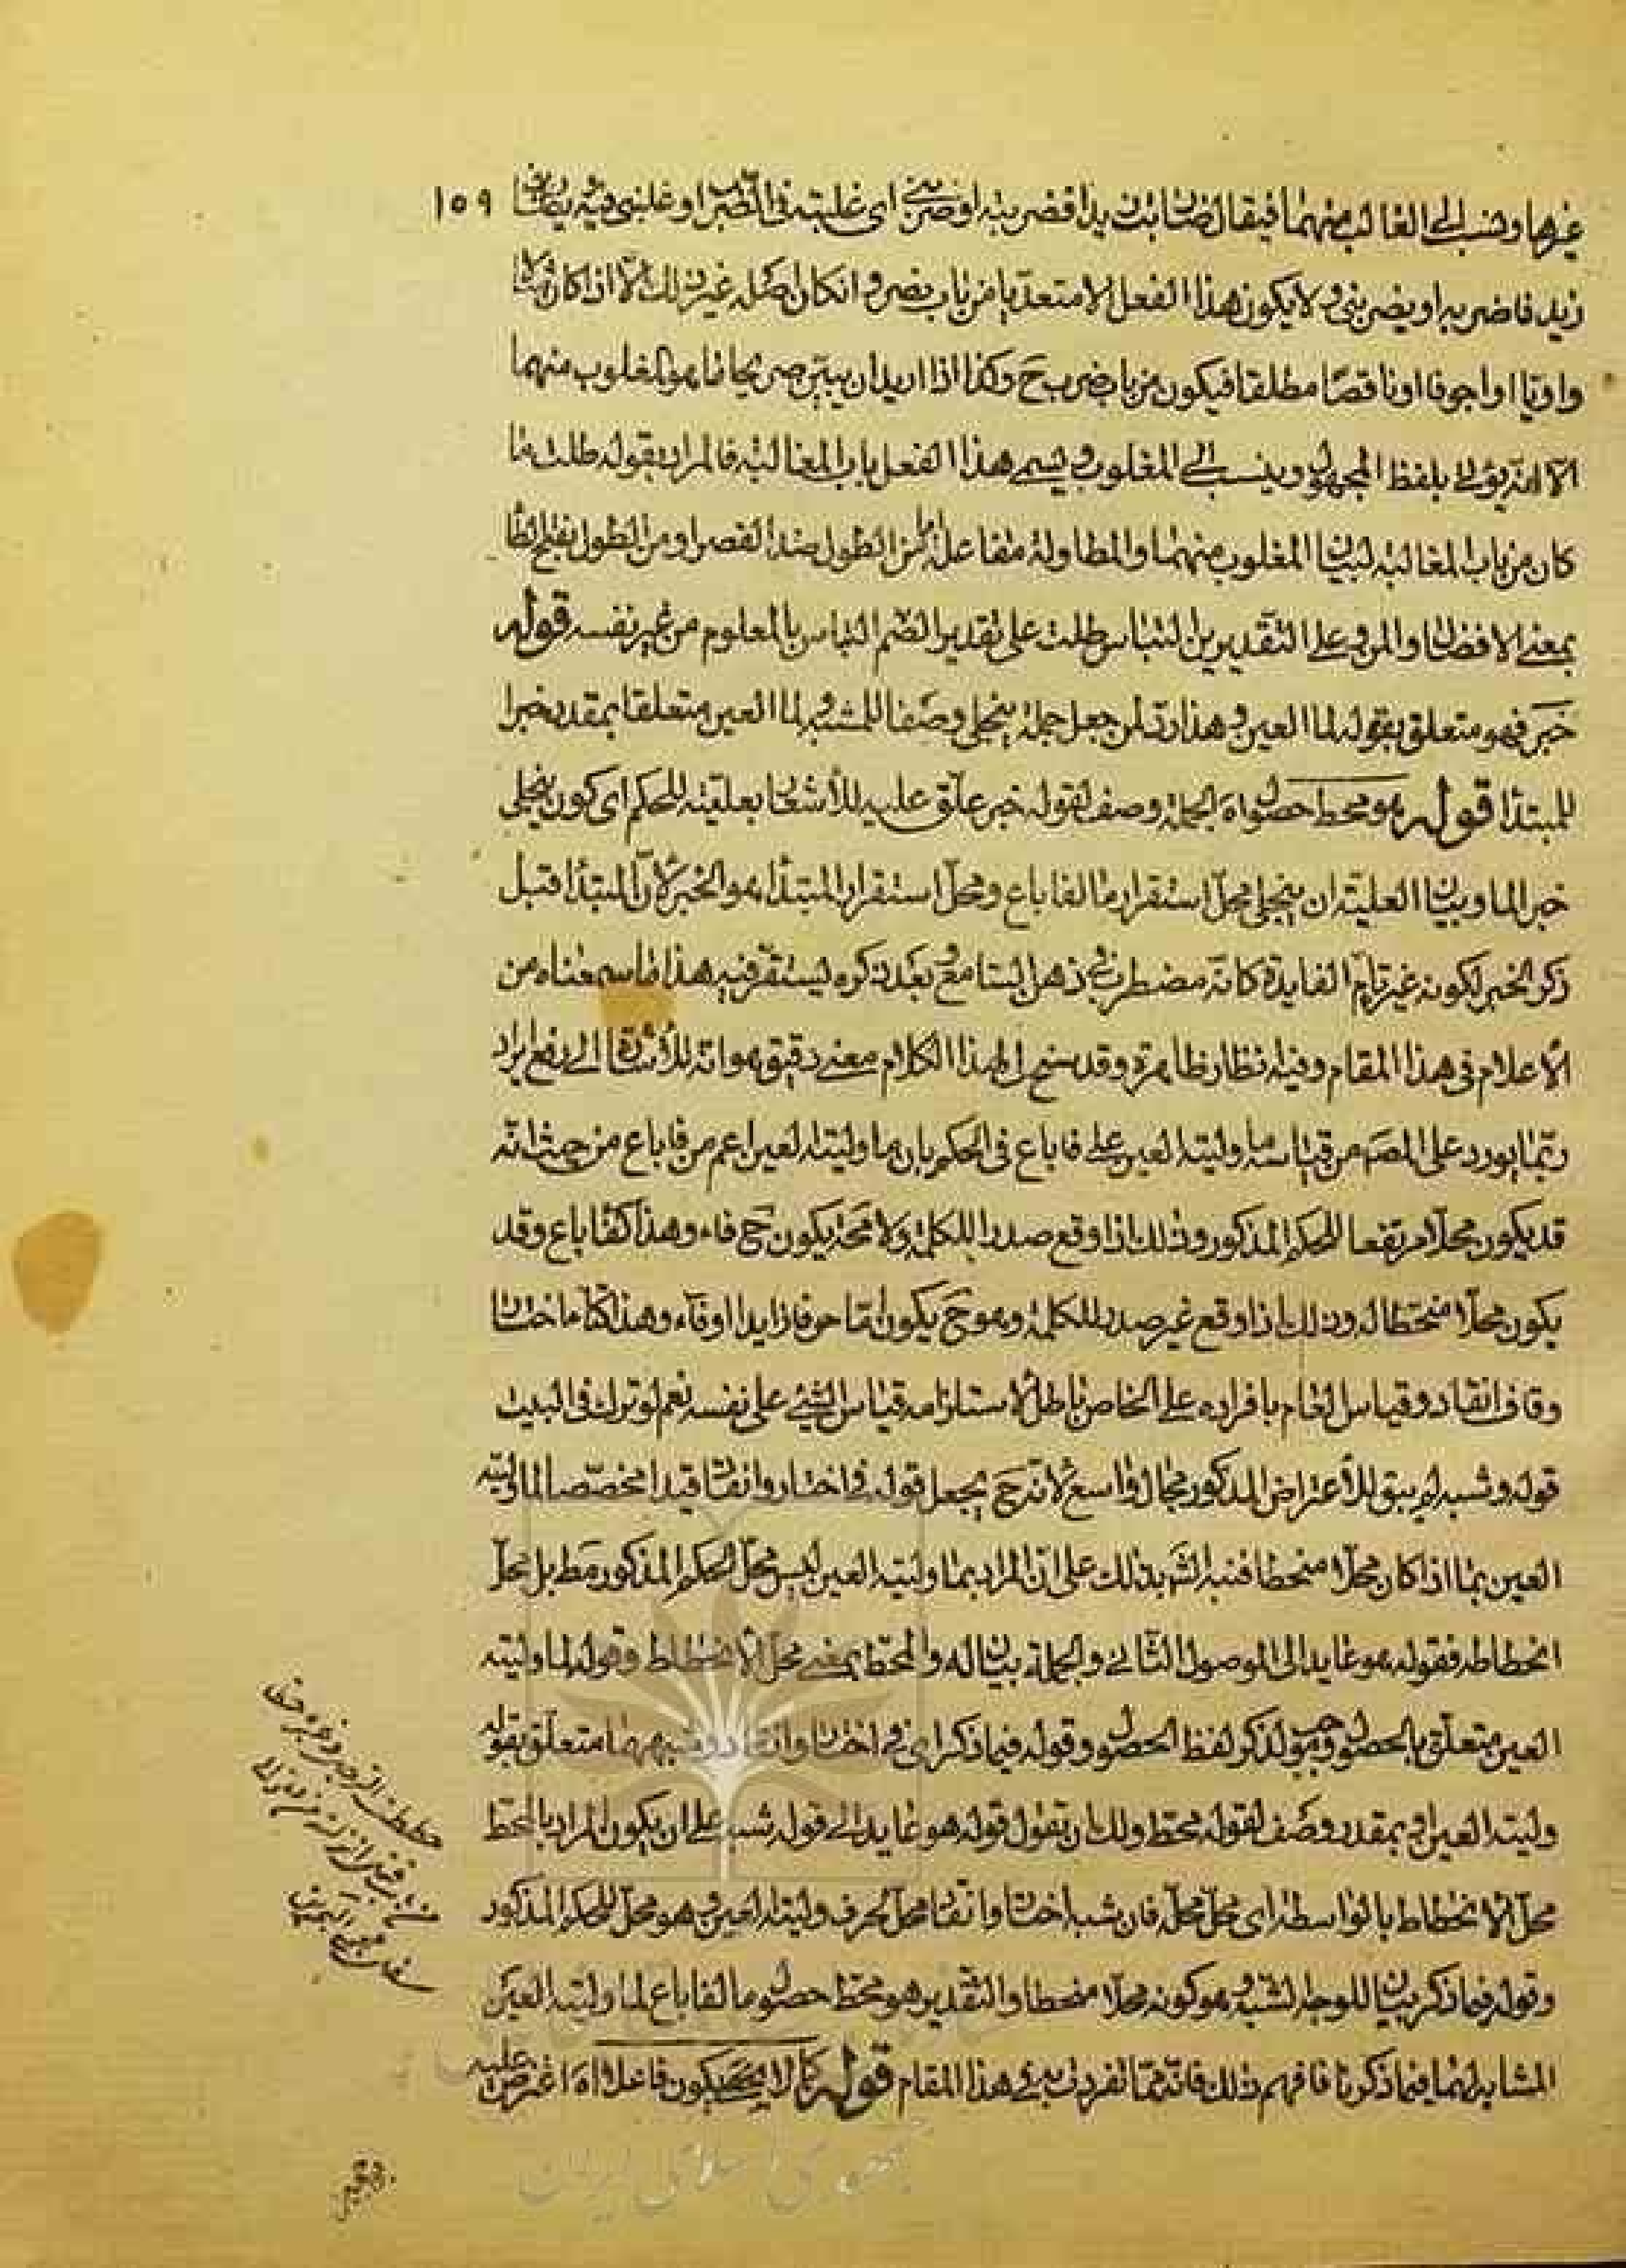 غيرها وينسب الى الغالب منهما فيقال ضاربت زيدا فضربته او ضربني اى غلبته في الضرب او غلبني فيه يضارب ١٥٩
زيد فاضربه او يضربني ولا يكون هذا الفعل الا متعديا من باب نصر و ان كان اصله غير ذلك الا اذا كان مثالا
واويا او اجوفا او ناقصا مطلقا فيكون من باب ضرب ح وكذا اذا اريد ان يبين صريحا ما هو المغلوب منهما
الا انه يؤتى بلفظ المجهول وينسب الى المغلوب ويسمى هذا الفعل باب المغالبة فالمراد بقوله طلت ما
كان من باب المغالبة لبيان المغلوب منهما والمطاولة مفاعلة اما من الطول ضد القصر او من الطول بفتح الطا
بمعنى الافضال والمروى على التقديرين التباس طلت على تقدير الضم التباس بالمعلوم من غير نفسه قوله
خبر فهو متعلق بقوله لما العين وهذا رد لمن جعل جملة ينجلى وصفا للمشبه لما العين متعلقا بمقدر خبرا
للمبتدأ قوله هو محط حصول اه الجملة وصف لقوله خبر علق عليه للأشعار بعليته للحكم اى كون ينجلى
خبر الما وبيان العلية ان ينجلى محل استقرار ما لفا باع ومحل استقرار المبتدأ هو الخبر لان المبتدأ قبل
ذكر الخبر لكونه غير تام الفايدة كانه مضطرب في ذهن السامع وبعد ذكره ليستقر فيه هذا ما سمعناه من
الأعلام في هذا المقام وفيه انظار ظاهرة وقد سنح لى لهذا الكلام معنى دقيق هو انه للأشارة الى دفع ايراد
ربما يورد على المصـ من قياسه ما وليته العين على فا باع في الحكم بان ما وليته العين اعم من فا باع من حيث انه
قد يكون محلا مرتفعا للحكم المذكور وذلك اذا وقع صدرا للكلمة ولا محة يكون ح فاء وهذا كفا باع وقد
يكون محلا منحطا له وذلك اذا وقع غير صدر للكلمة وهو ح يكون اما حرفا زايدا او فاء وهذا كتاء اختار
وقاف انقاد وقياس العام بافراده على الخاص باطل لاستلزامه قياس الشيء على نفسه نعم لو ترك في البيت
قوله وشبه لم يبق للأعتراض المذكور مجال واسع لانه ح يجعل قوله في اختار وانقاد قيدا مخصصا لما وليته
العين بما اذا كان محلا منحطا فنبه الشـ بذلك على ان المراد بما وليته العين ليس محل الحكم المذكور مط بل محل
انحطاطه فقوله هو عايد الى الموصول الثانى والجملة بيان له والمحط بمعنى محل الانحطاط وقوله لما وليته
العين متعلق بالحصول وموجب لذكر لفظ الحصول وقوله فيما ذكر اى في اختار وانقاد وشبههما متعلق بقوله
وليته العين او بمقدر وصف لقوله محط ولك ان تقول قوله هو عايد الى قوله شبه على ان يكون المراد بالمحط
محل الانحطاط بالواسطة اى محل محله فان شبه اختار وانقاد محل لحرف وليته العين وهو محل للحكم المذكور
وقوله فيما ذكر بيان للوجه لشبه وهو كونه محلا منحطا والتقدير هو محط حصول ما لفا باع لما وليته العين
المشابه لهما فيما ذكرنا فافهم ذلك فانه مما تفردت به في هذا المقام قوله كما لا يصح يكون فاعلا اه اعترض عليه